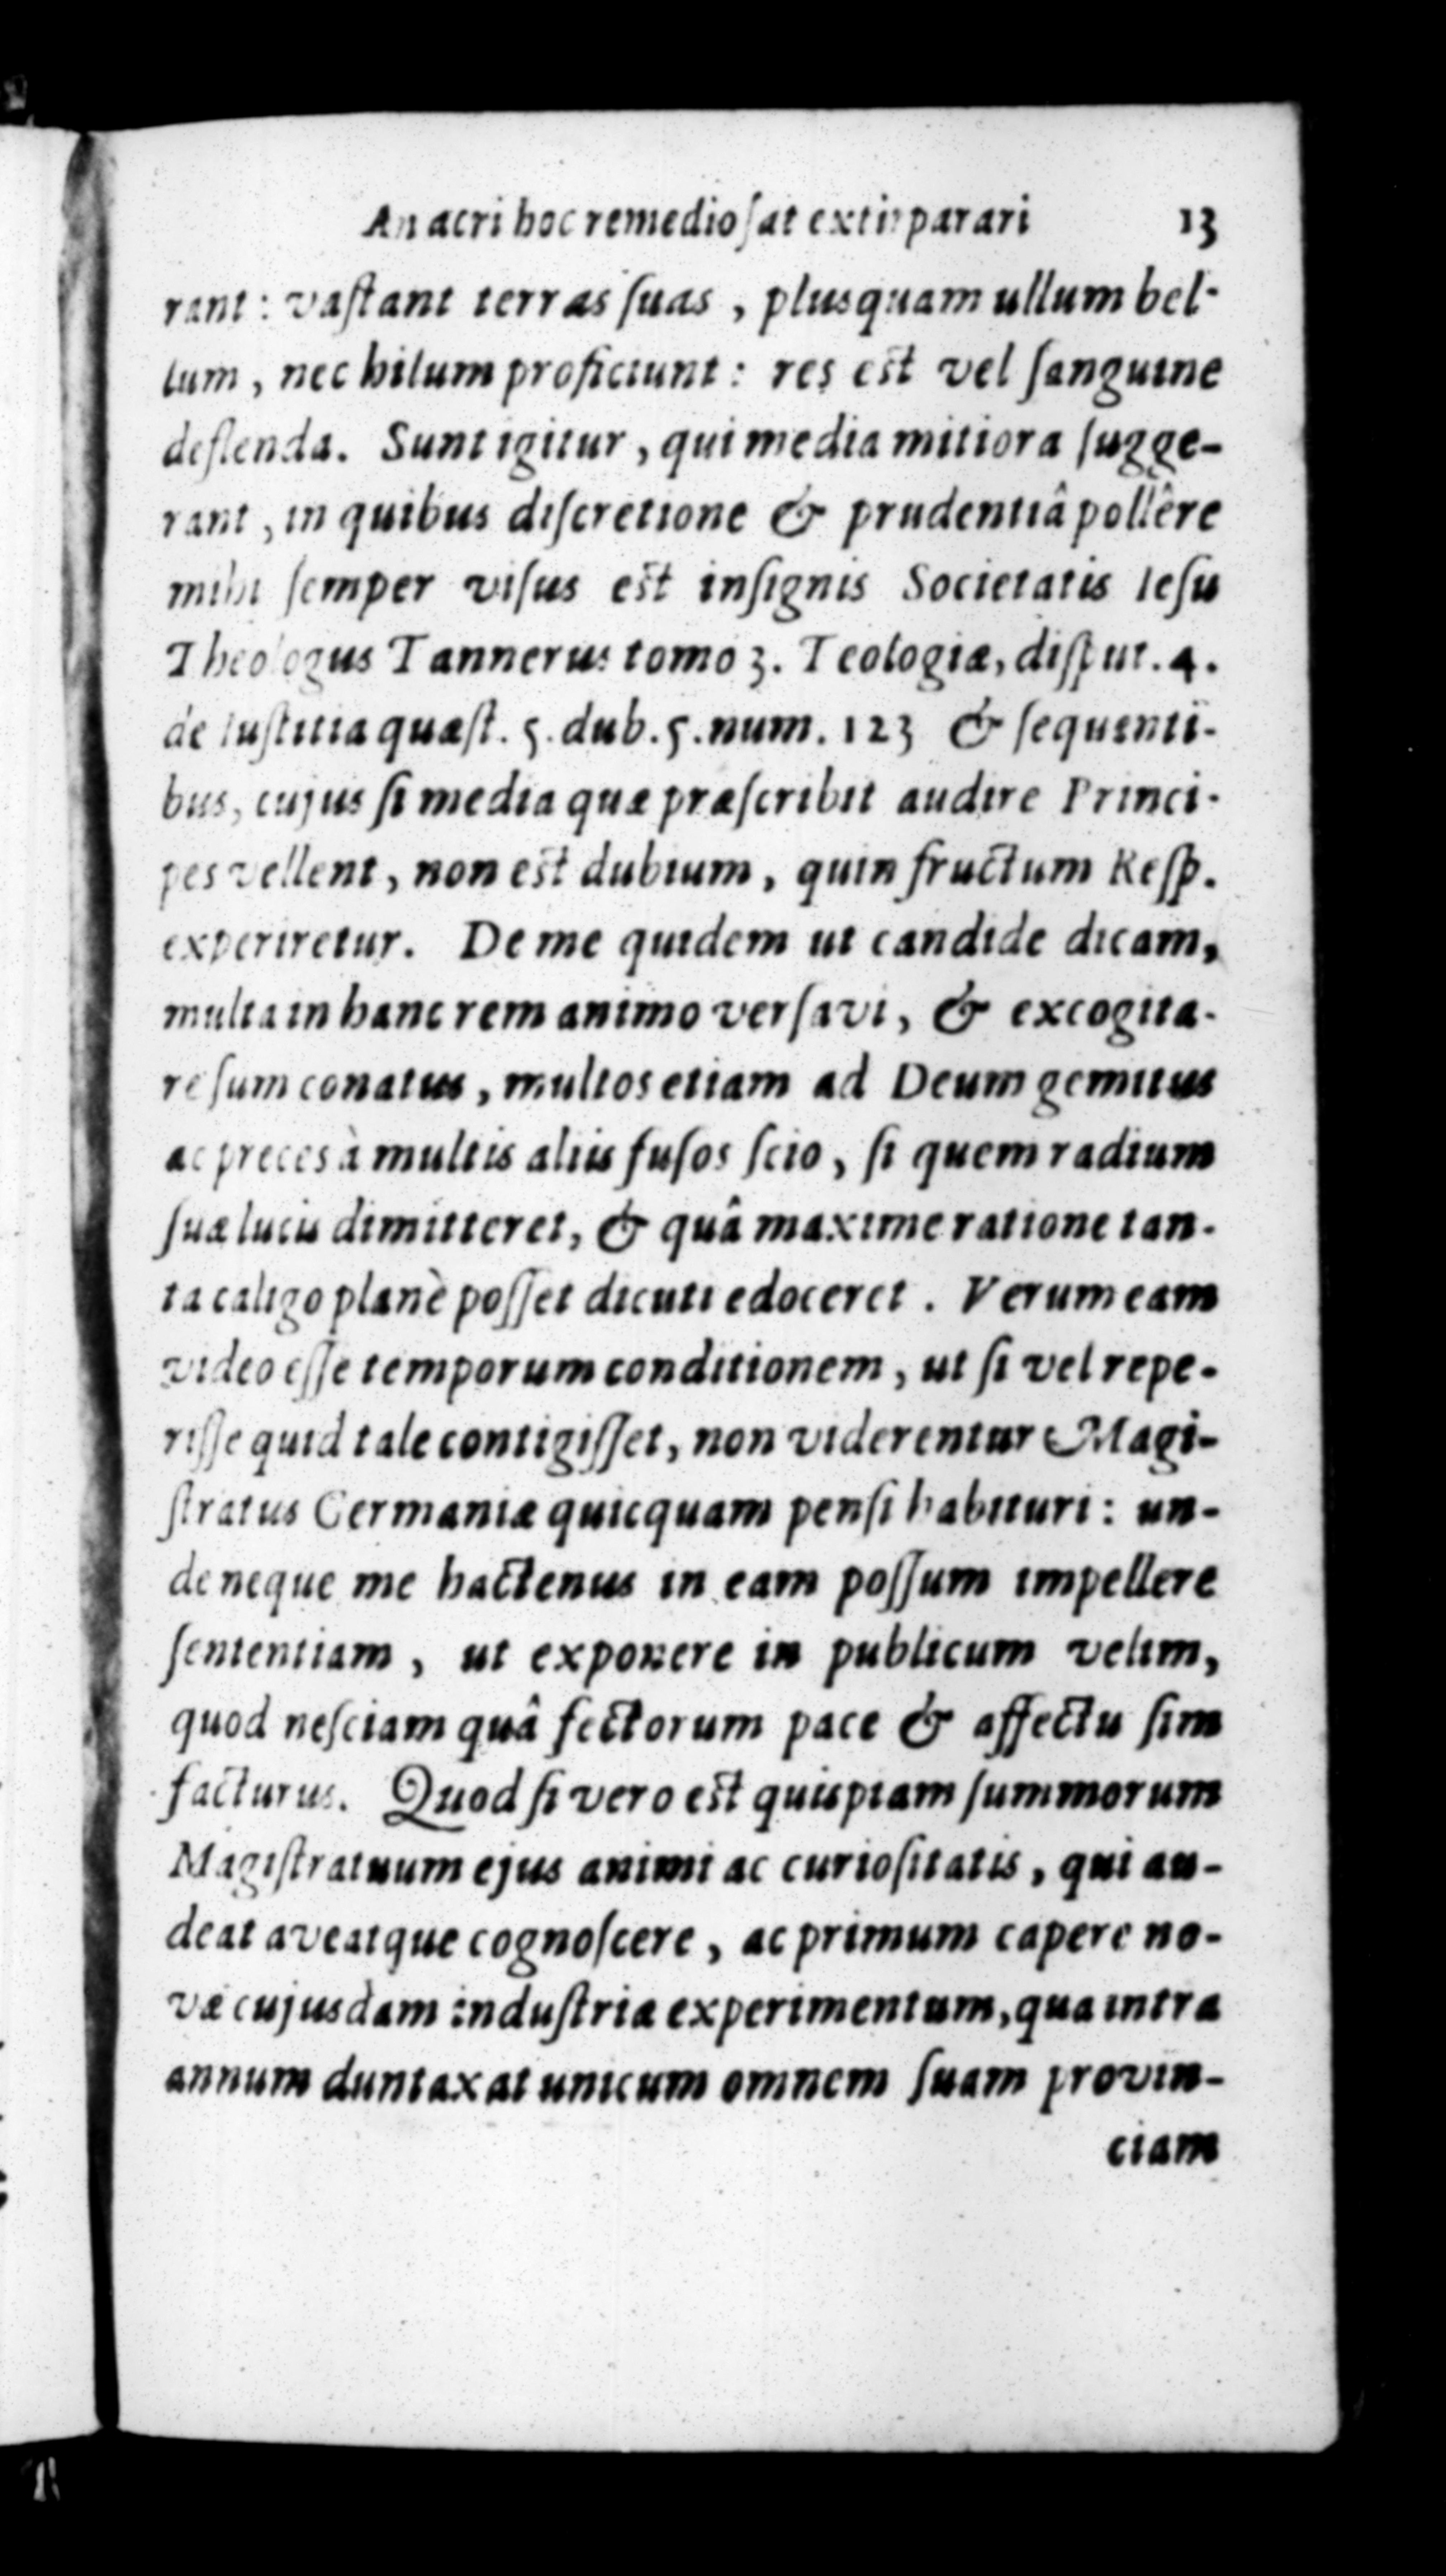 An acri hoc remedio ſat extirparari 13
rant: vaſtant terras ſuas, pluſquam ullum bel-
lum, nec hilum proficiunt: res est vel ſanguine
deflenda. Sunt igitur, qui media mitiora ſugge-
rant, in quibus diſcretione & prudentiâ pollêre
mihi ſemper viſus est inſignis Societatis Ieſu
Theologus Tannerus tomo 3. Teologiæ, diſput. 4.
de Iuſtitia quæſt. 5. dub. 5. num. 123 & ſequenti-
bus, cujus ſi media quæ præſcribit audire Princi-
pes vellent, non est dubium, quin fructum Reſp.
experiretur. De me quidem ut candide dicam,
multa in hanc rem animo verſavi, & excogita-
re ſum conatus, multos etiam ad Deum gemitus
ac preces à multis aliis fuſos ſcio, ſi quem radium
ſuæ lucis dimitteret, & quâ maxime ratione tan-
ta caligo planè poſſet dicuti edoceret. Verum eam
video eſſe temporum conditionem, ut ſi vel repe-
riſſe quid tale contigiſſet, non viderentur Magi-
ſtratus Germaniæ quicquam penſi habituri: un-
de neque me hactenus in eam poſſum impellere
ſententiam, ut exponere in publicum velim,
quod neſciam quâ fectorum pace & affectu ſim
facturus. Quod ſi vero est quiſpiam ſummorum
Magiſtratuum ejus animi ac curioſitatis, qui au-
deat aveatque cognoſcere, ac primum capere no-
væ cujusdam induſtriæ experimentum, qua intra
annum duntaxat unicum omnem ſuam provin-
ciam